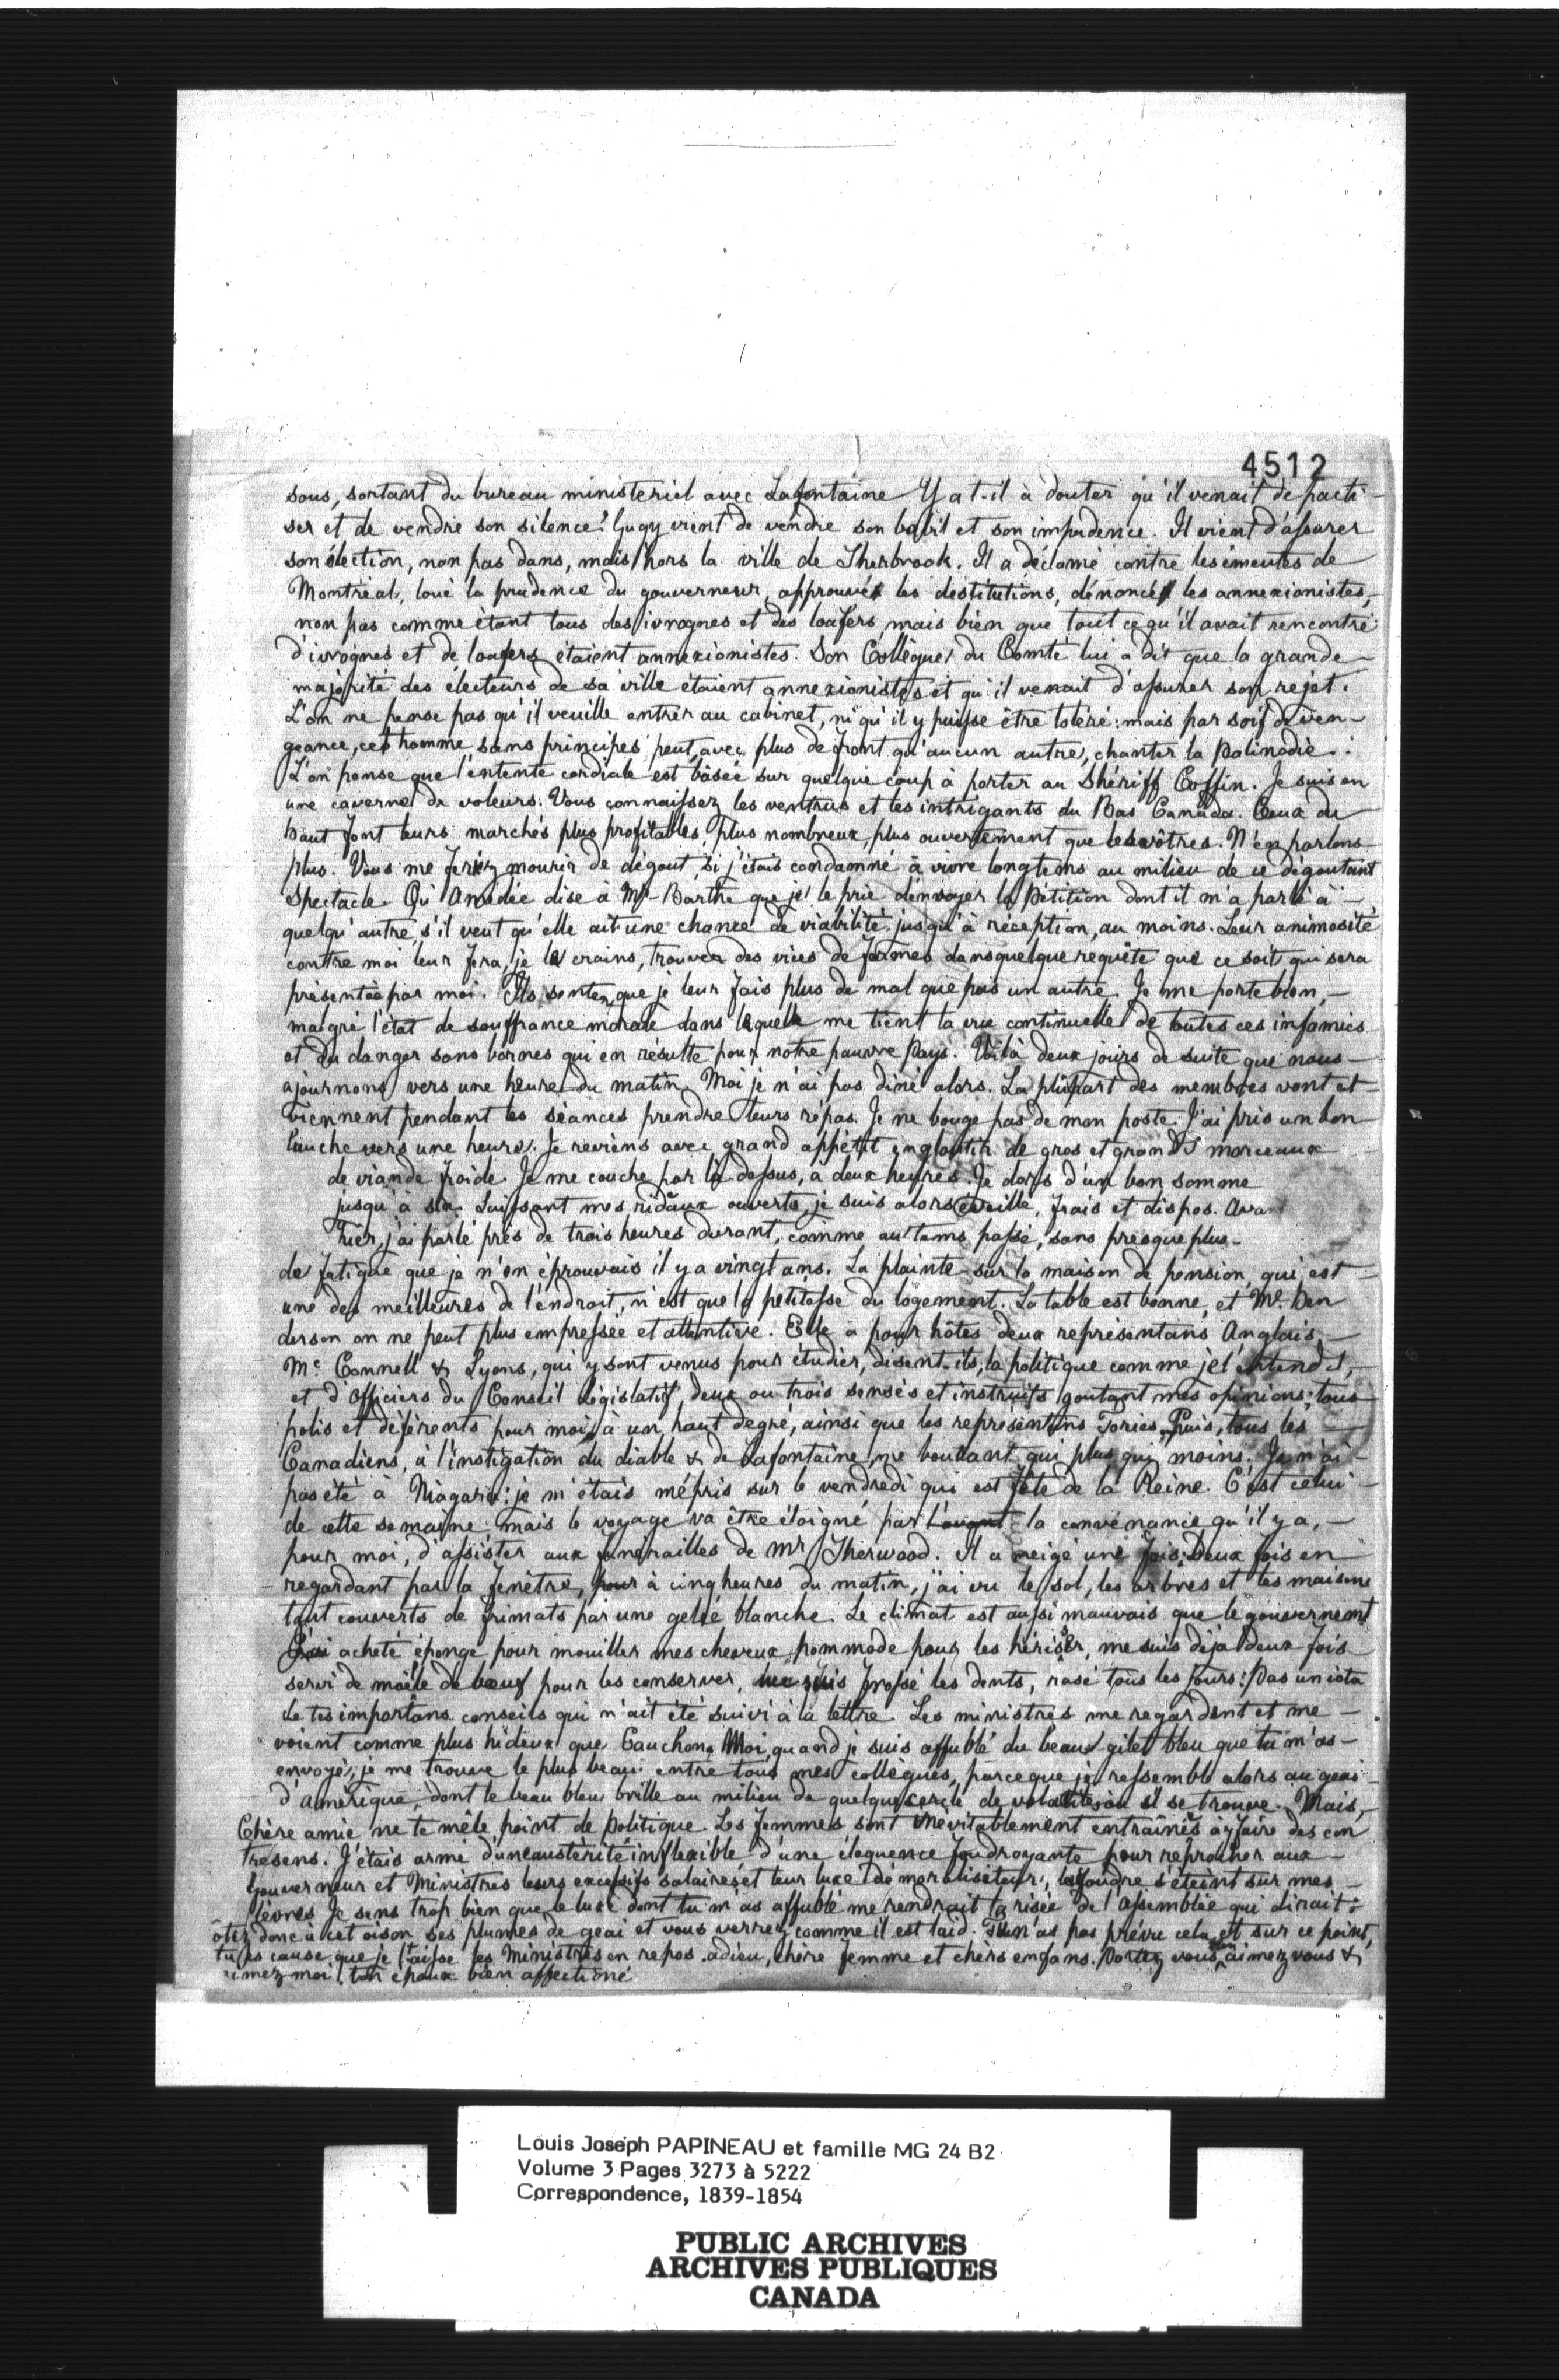 4512
sous, sortant du bureau ministeriel avec Lafontaine Y a t-il à douter qu'il venait de pacti-
ser et de vendre son silence? Gugy vient de vendre son babil et son impudence. Il vient d'assurer
son élection, non pas dans, mais hors la ville de Sherbrook. Il a déclamé contre les émeutes de
Montréal, loué la prudence du gouverneur, approuvé les destitutions, dénoncé les annexionistes,-
non pas comme étant tous des ivrognes et des loafers, mais bien que tout ce qu'il avait rencontré
d'ivrognes et de loafers étaient annexionistes. Son Collègue du Comté lui a dit que la grande-
majorité des électeurs de sa ville étaient annexionistes et qu'il venait d'assurer son rejet.
L'on ne pense pas qu'il veuille entrer au cabinet, ni qu'il y puisse être toléré: mais par soif de ven-
geance, cet homme sans principes peut, avec plus de front qu'aucun autre, chanter la palinodie.
L'on pense que l'entente cordiale est basée sur quelque coup à porter au Shériff Coffin. Je suis en
une caverne de voleurs. Vous connaissez les ventrus et les intrigants du Bas Canada. Ceux du
haut font leurs marchés plus profitables, plus nombreux, plus ouvertement que les vôtres. N'en parlons-
plus. Vous me feriez mourir de dégout, si j'étais condamné à vivre longtems au milieu de ce dégoutant
Spectacle. Qu'Amédée dise à Mr Barthe que je le prie d'envoyer la Pétition dont il m'a parlé à-
quelqu'autre, s'il veut qu'elle ait une chance de viabilité jusqu'à réception, au moins. Leur animosité
contre moi leur fera, je le crains, trouver des vices de formes dans quelque requête que ce soit qui sera
présentée par moi. Ils sentent que je leur fais plus de mal que pas un autre. Je me porte bien,-
malgré l'état de souffrance morale dans lequel me tient la vue continuelle de toutes ces infamies
et du danger sans bornes qui en résulte pour notre pauvre Pays. Voilà deux jours de suite que nous-
ajournons vers une heure du matin. Moi je n'ai pas diné alors. La plupart des membres vont et-
viennent pendant les séances prendre leurs répas. Je ne bouge pas de mon poste. J'ai pris un bon
lunche vers une heure. Je reviens avec grand appétit engloutir de gros et grands morceaux
de viande froide. Je me couche par là dessus, à deux heures. Je dors d'un bon somme
jusqu'à six. Laissant mes ridaux ouverts, je suis alors éveillé, frais et dispos. Avant
hier, j'ai parlé près de trois heures durant, comme au tems passé, sans presque plus-
de fatigue que je n'en éprouvais il y a vingt ans. La plainte sur la maison de pension, qui est-
une des meilleures de l'endroit, n'est que la petitesse du logement. La table est bonne, et Me. Den
derson on ne peut plus empressée et attentive. Elle a pour hôtes deux représentans Anglais,-
Mc Connell & Lyons, qui y sont venus pour étudier, disent-ils, la politique comme je l'entends,-
et d'Officiers du Conseil Législatif, deux ou trois sensés et instruits goutant mes opinions, tous
polis et déférents pour moi, à un haut degré, ainsi que les représentans Tories. Puis, tous les-
Canadiens, à l'instigation du diable & de Lafontaine, me boudant qui plus qui moins. Je n'ai-
pas été à Niagara: je m'étais mépris sur le vendredi qui est fête de la Reine. C'est celui-
de cette semaine, mais le voyage va être éloigné par la convénance qu'il y a,-
pour moi, d'assister aux funérailles de Mr Sherwood. Il a neigé une fois; Deux fois en
regardant par la fenêtre, à cinq heures du matin, j'ai vu le sol, les arbres et les maisons
tout couverts de frimats par une gelée blanche. Le climat est aussi mauvais que le gouvernemt
J'ai acheté éponge pour mouiller mes cheveux, pommade pour les hérisser, me suis déjà deux fois-
servi de moële de bœuf pour les conserver, me suis frossé les dents, rasé tous les jours: Pas un iota
de tes importans conseils qui n'ait été suivi à la lettre. Les ministres me regardent et me-
voient comme plus hideux que Cauchon. Moi, quand je suis affublé du beau gilet bleu que tu m'as-
envoyé, je me trouve le plus beau entre tous mes collègues, parceque je ressemble alors au geai-
d'Amérique, dont le beau bleu brille au milieu de quelque cercle de volatiles où il se trouve. Mais,-
Chère amie ne te mêle point de Politique. Les femmes sont inévitablement entrainés à y faire des con
tresens. J'étais armé d'une austérité inflexible, d'une éloquence foudroyante pour reprocher aux-
Gouverneur et Ministres leurs excessifs salaires et leur luxe démoralisateur, la foudre s'éteint sur mes-
lèvres. Je sens trop bien que le luxe dont tu m'as affublé me rendrait la risée de l'Assemblée qui dirait:
ôtez donc à cet oison ses plumes de geai et vous verrez comme il est laid. Tu n'as pas prévu cela, et sur ce point,
tu es cause que je laisse les Ministres en repos. adieu, chère femme et chers enfans. Portez vous bien aimez vous &
aimez moi. ton époux bien affectioné
Louis Joseph PAPINEAU et famille MG 24 B2
Volume 3 Pages 3273 à 5222
Correspondence, 1839-1854
PUBLIC ARCHIVES
ARCHIVES PUBLIQUES
CANADA